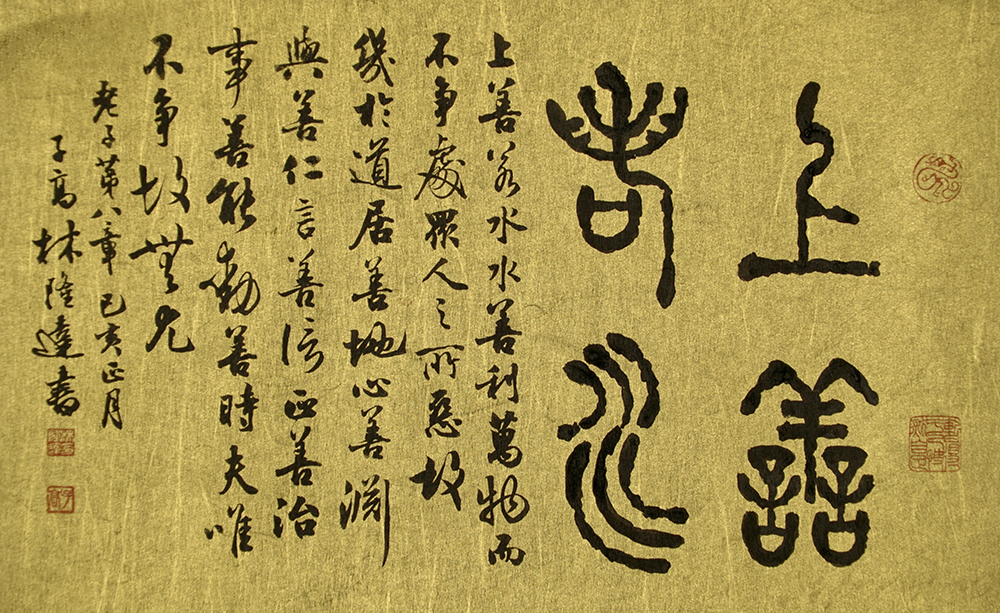 上善
若水
上善若水水善利萬物而
不爭處眾人之所惡故
幾於道居善地心善淵
與善仁言善信正善治
事善能動善時夫唯
不爭故無尤
老子第八章己亥正月
子高林隆達書